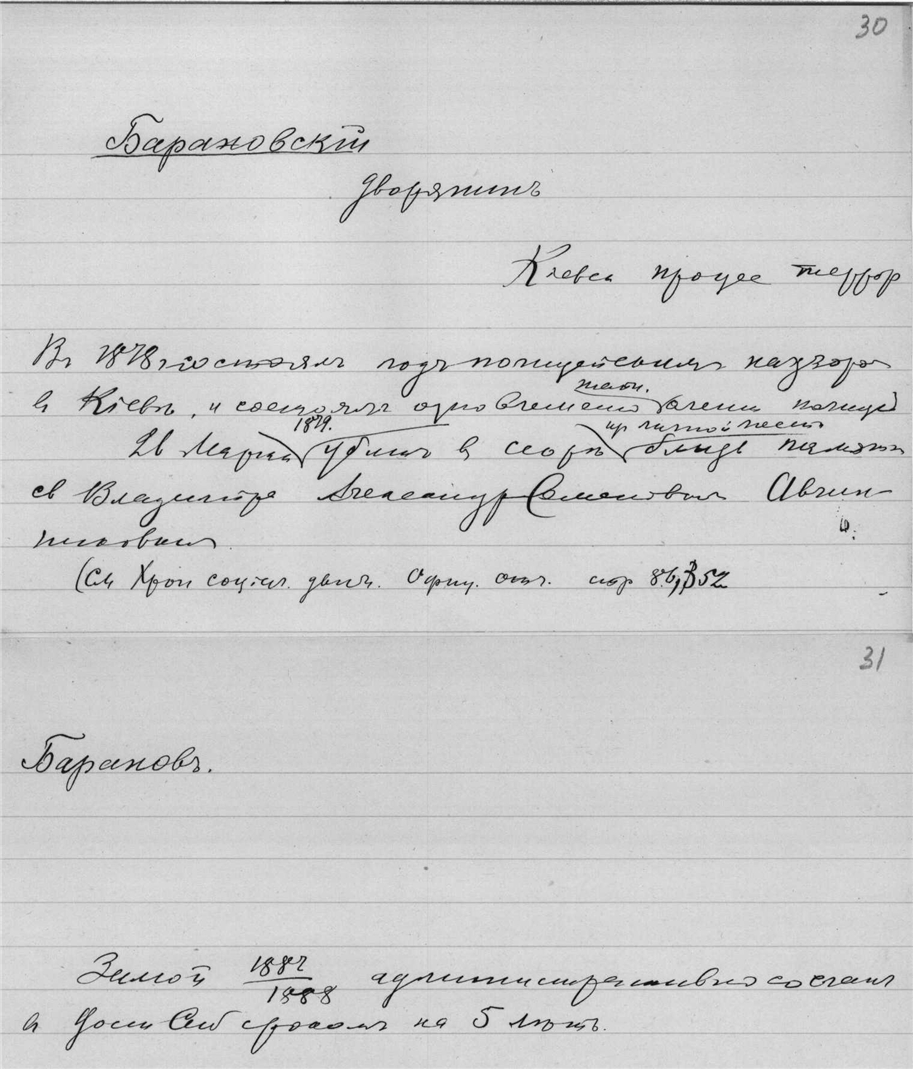 30
Барановскій
Дворянинъ
Кіевск процес террор
Въ 1878 г состоялъ подъ полицейскимъ надзоро
в Кіевѣ, и состоялъ одновременно агент полице
1879.
26 Марта убитъ в ссорѣ близь памятн
св Владиміра Александр Семеновым Овчин-
никовым
(См Хрон социал. движ. Офиц. отч. стр 86, 352
31
Барановъ.
Зимой 1887/1888 административно сослан
в Вост Сиб сроком на 5 лѣтъ.